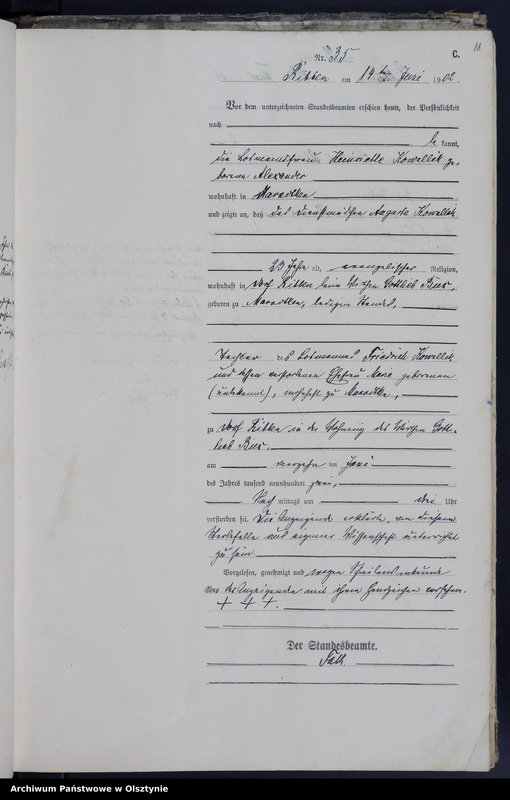 C.
11
Nr. 35
Ribben am 14ten Juni 1902.
Vor dem unterzeichneten Standesbeamten erschien heute, der Persönlichkeit
nach
bekannt,
die Losmannsfrau Henriette Kowallik ge-
borene Alexander
wohnhaft in Maradtken
und zeigte an, daß das Dienstmädchen Auguste Kowallik
23 Jahre alt, evangelischer Religion,
wohnhaft in Dorf Ribben beim Wirthen Gottlieb
geboren zu Maradtken, ledigen Standes,
Tochter des Losmannes Friedrich Kowallik
und dessen verstorbenen Ehefrau Marie geborenen
(unbekannt), wohnhaft zu Maradtken,
zu Dorf Ribben in der Wohnung des Wirthen Gott-
lieb
am vierzehnten Juni
des Jahres tausend neunhundert zwei,
Nachmittags um drei Uhr
verstorben sei. Die Anzeigende erklärte, von diesem
Sterbefalle aus eigener Wissenschaft unterrichtet
zu sein.
Vorgelesen, genehmigt und wegen Schreibensunkunde
von der Anzeigenden mit ihren Handzeichen versehen.
+ + +.
Der Standesbeamte.
Archiwum Państwowe w Olsztynie